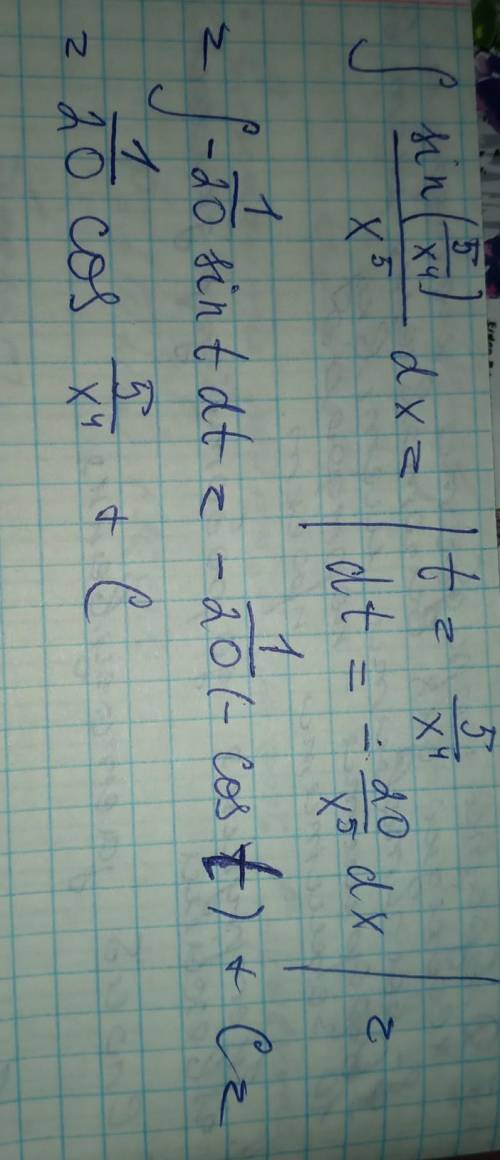 ∫ sin(5/x⁴)/x⁵ dx = | t = 5/x⁴
dt = -20/x⁵ dx | =
= ∫ -1/20 sin t dt = -1/20 (-cos t) + C =
= 1/20 cos 5/x⁴ + C